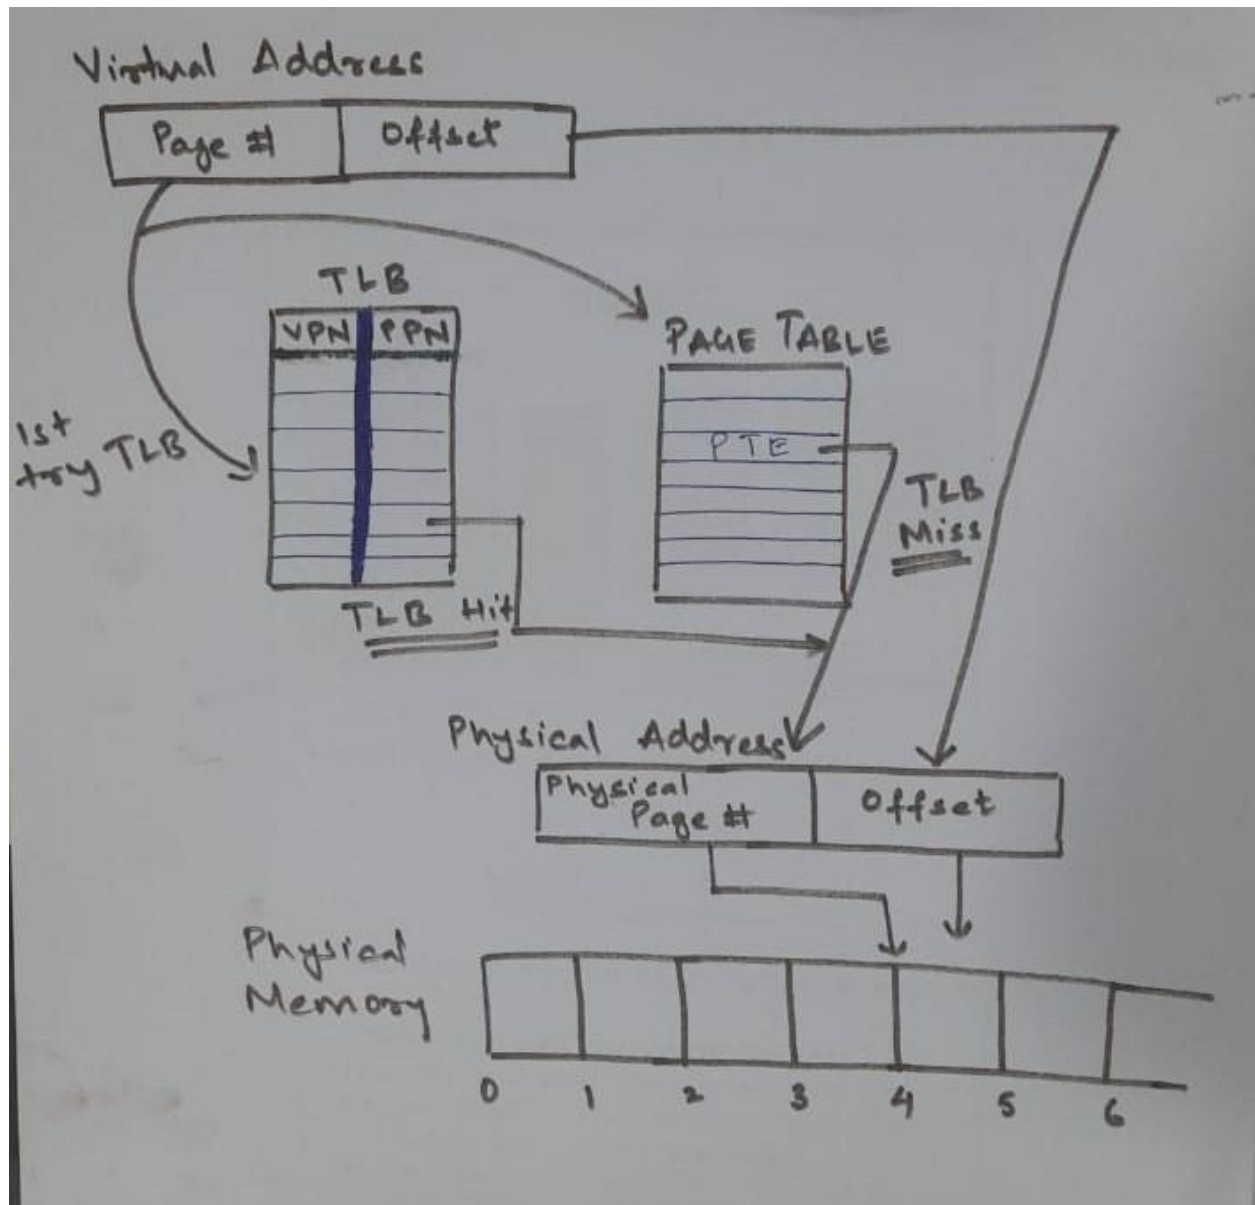 Virtual Address
Page #
Offset
TLB
VPN
PPN
PAGE TABLE
PTE
1st
try TLB
TLB
Miss
TLB Hit
Physical Address
Physical
Page #
Offset
Physical
Memory
0
1
2
3
4
5
6